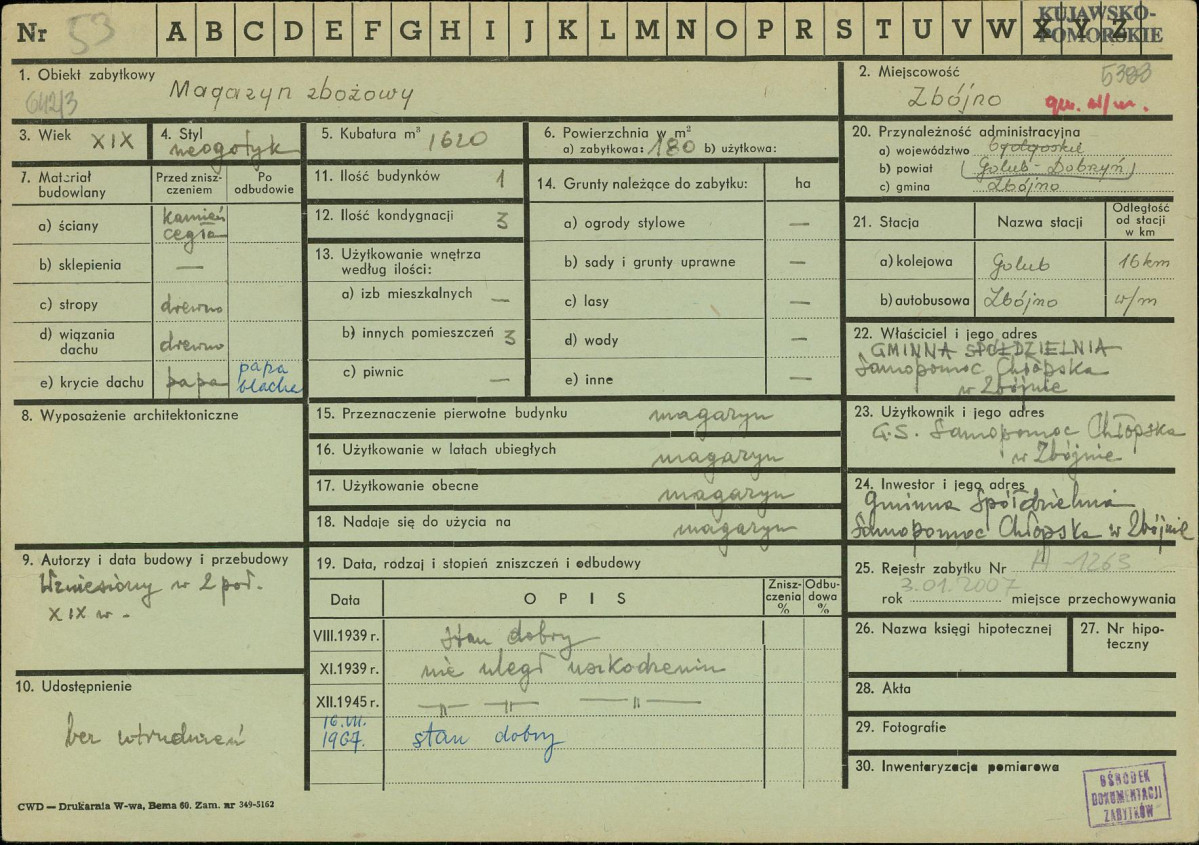 Nr 53 A B C D E F G H I J K L M N O P R S T U V W X Y Z
KUJAWSKO-
POMORSKIE
1. Obiekt zabytkowy
642/3
Magazyn zbożowy
2. Miejscowość
5383
Zbójno
gm. w/m.
3. Wiek XIX
4. Styl
neogotyk
5. Kubatura m³ 1620
6. Powierzchnia w m²
a) zabytkowa: 180 b) użytkowa:
7. Materiał budowlany
Przed zniszczeniem
Po odbudowie
a) ściany kamień
cegła
b) sklepienia —
c) stropy drewno
d) wiązania dachu drewno
e) krycie dachu papa papa
blacha
8. Wyposażenie architektoniczne
9. Autorzy i data budowy i przebudowy
Wzniesiony w 2 poł.
XIX w -
10. Udostępnienie
bez utrudnień
11. Ilość budynków 1
12. Ilość kondygnacji 3
13. Użytkowanie wnętrza
według ilości:
a) izb mieszkalnych —
b) innych pomieszczeń 3
c) piwnic —
14. Grunty należące do zabytku: ha
a) ogrody stylowe —
b) sady i grunty uprawne —
c) lasy —
d) wody —
e) inne —
15. Przeznaczenie pierwotne budynku magazyn
16. Użytkowanie w latach ubiegłych magazyn
17. Użytkowanie obecne magazyn
18. Nadaje się do użycia na magazyn
19. Data, rodzaj i stopień zniszczeń i odbudowy
Data OPIS Zniszczenia % Odbudowa %
VIII.1939 r. stan dobry
XI.1939 r. nie uległ uszkodzeniu
XII.1945 r. —"— —"— —"—
16.III.
1967. stan dobry
20. Przynależność administracyjna
a) województwo bydgoskie
b) powiat (Golub-Dobrzyń)
c) gmina Zbójno
21. Stacja Nazwa stacji Odległość od stacji w km
a) kolejowa Golub 16 km
b) autobusowa Zbójno w/m
22. Właściciel i jego adres
GMINNA SPÓŁDZIELNIA
Samopomoc Chłopska
w Zbójnie
23. Użytkownik i jego adres
G.S. Samopomoc Chłopska
w Zbójnie
24. Inwestor i jego adres
Gminna Spółdzielnia
Samopomoc Chłopska w Zbójnie
25. Rejestr zabytku Nr A-1263
3.01.2007
rok miejsce przechowywania
26. Nazwa księgi hipotecznej
27. Nr hipoteczny
28. Akta
29. Fotografie
30. Inwentaryzacja pomiarowa
OŚRODEK
DOKUMENTACJI
ZABYTKÓW
CWD — Drukarnia W-wa, Bema 60. Zam. nr 349-5162